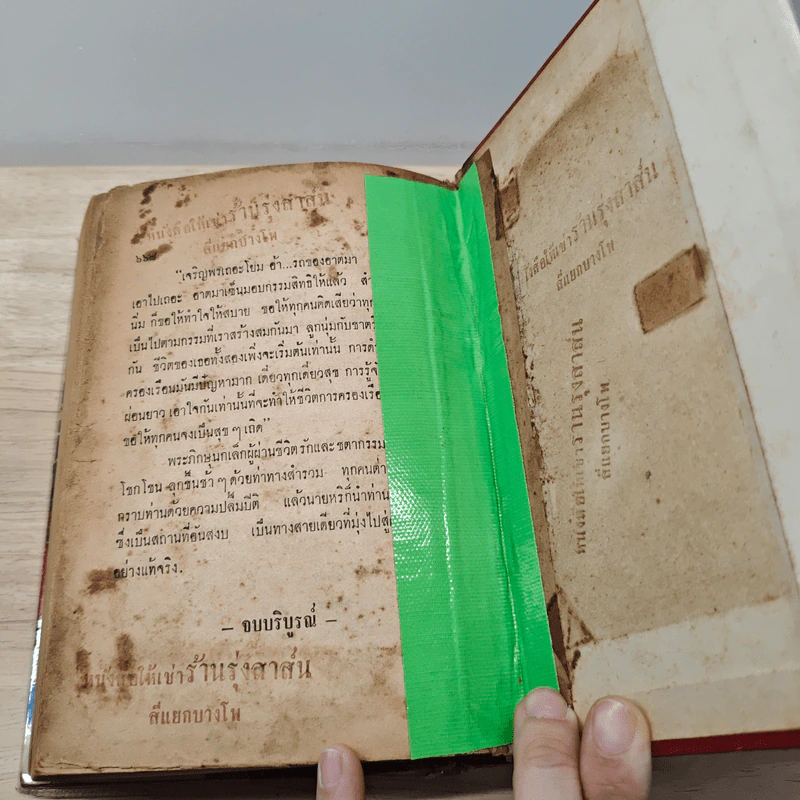 หนังสือให้เช่าร้านรุ่งสาส์น
สี่แยกบางโพ
"เจริญพรเถอะโยม อ้า...รถของอาตมา
เอาไปเถอะ อาตมาเซ็นมอบกรรมสิทธิให้แล้ว
นิ่ม ก็ขอให้ทำใจให้สบาย ขอให้ทุกคนคิดเสียว่าทุก
เป็นไปตามกรรมที่เราสร้างสมกันมา ลูกนุ่มกับชาตรี
กัน ชีวิตของเธอทั้งสองเพิ่งจะเริ่มต้นเท่านั้น การดำ
ครองเรือนมันมีปัญหามาก เดี๋ยวทุกข์เดี๋ยวสุข การรู้จั
ผ่อนยาว เอาใจกันเท่านั้นที่จะทำให้ชีวิตการครองเรือ
ขอให้ทุกคนจงเป็นสุข ๆ เถิด"
พระภิกษุนกเล็กผู้ผ่านชีวิตรักและชตากรรม
โชกโชน ลุกขึ้นช้า ๆ ด้วยท่าทางสำรวม ทุกคนต่า
กราบท่านด้วยความปลื้มปีติ แล้วนายหริก็นำท่าน
ซึ่งเป็นสถานที่อันสงบ เป็นทางสายเดียวที่มุ่งไปสู่
อย่างแท้จริง.
– จบบริบูรณ์ –
หนังสือให้เช่าร้านรุ่งสาส์น
สี่แยกบางโพ
หนังสือให้เช่าร้านรุ่งสาส์น
สี่แยกบางโพ
หนังสือให้เช่าร้านรุ่งสาส์น
สี่แยกบางโพ